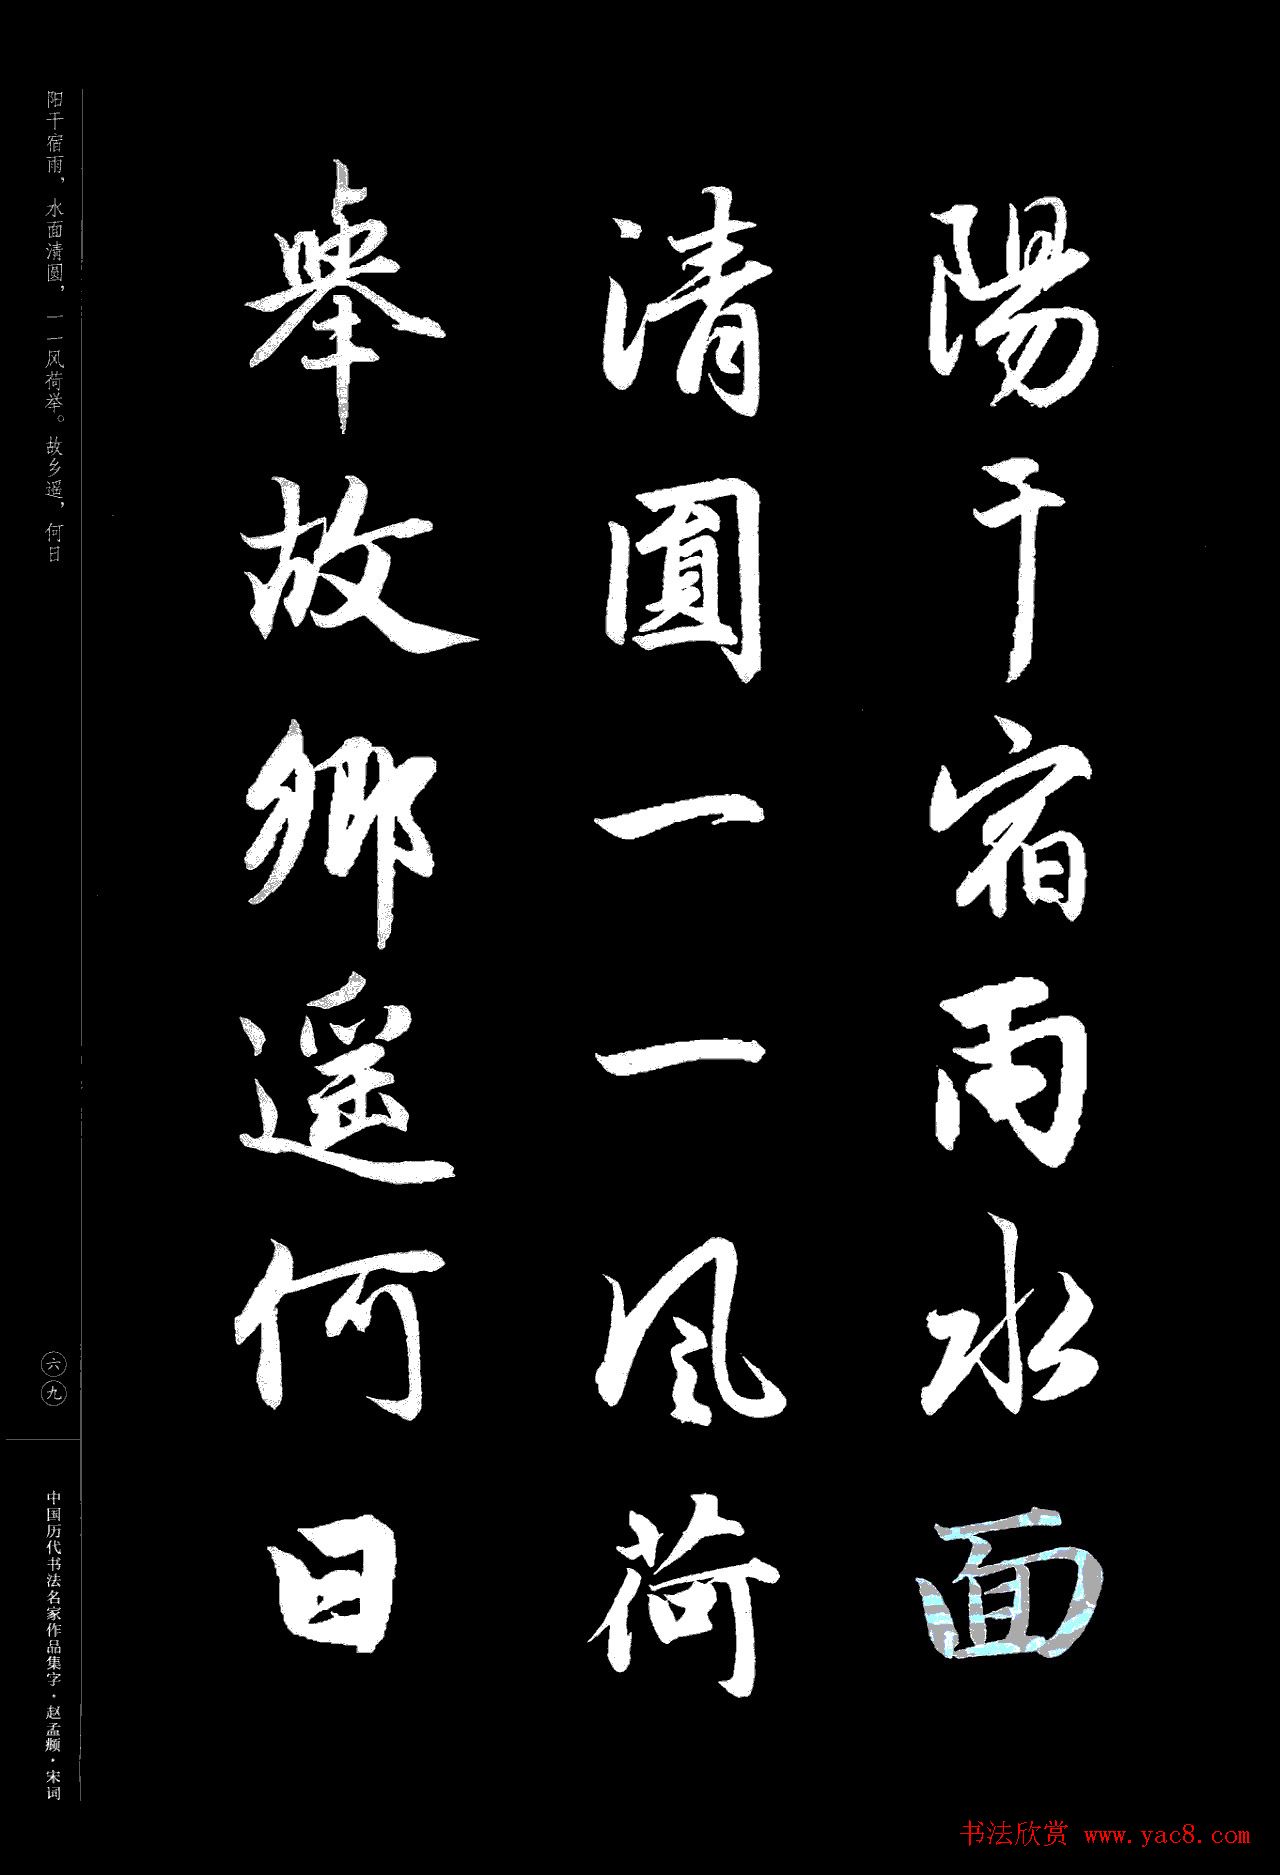 陽干宿雨水面
清圓一一风荷
舉故鄉遥何日
阳干宿雨，水面清圆，一一风荷举。故乡遥，何日
六九
中国历代书法名家作品集字·赵孟頫·宋词
书法欣赏 www.yac8.com